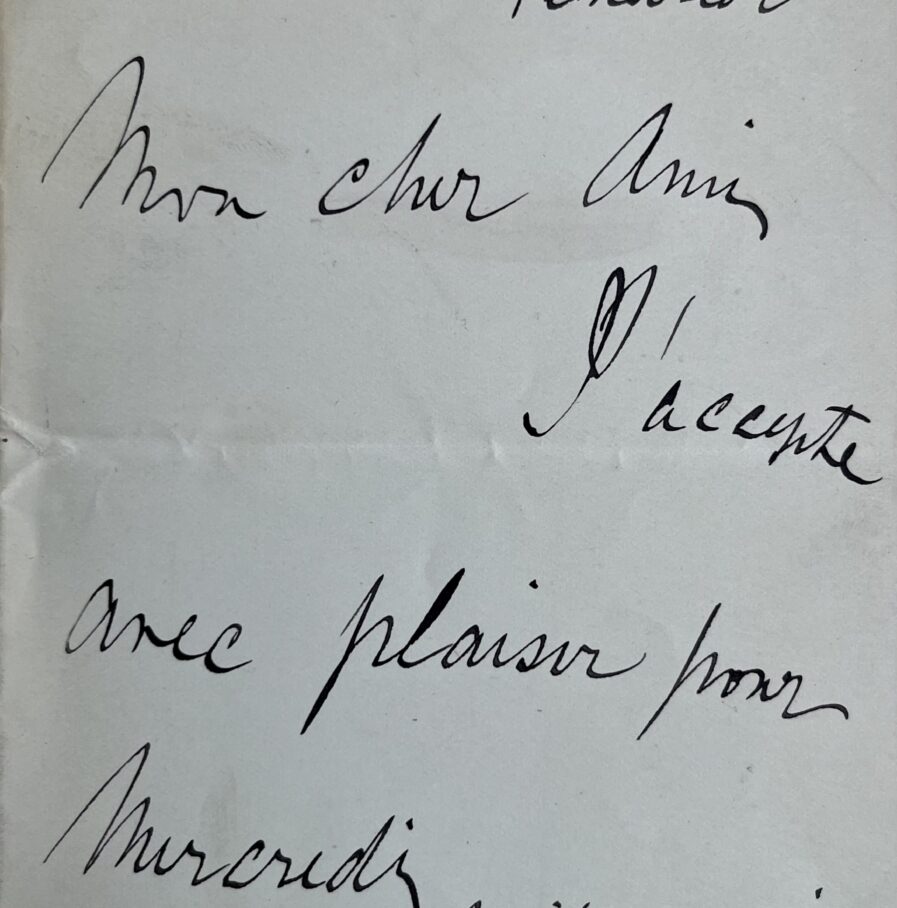 Mon cher Ami,
J'accepte
avec plaisir pour
Mercredi,